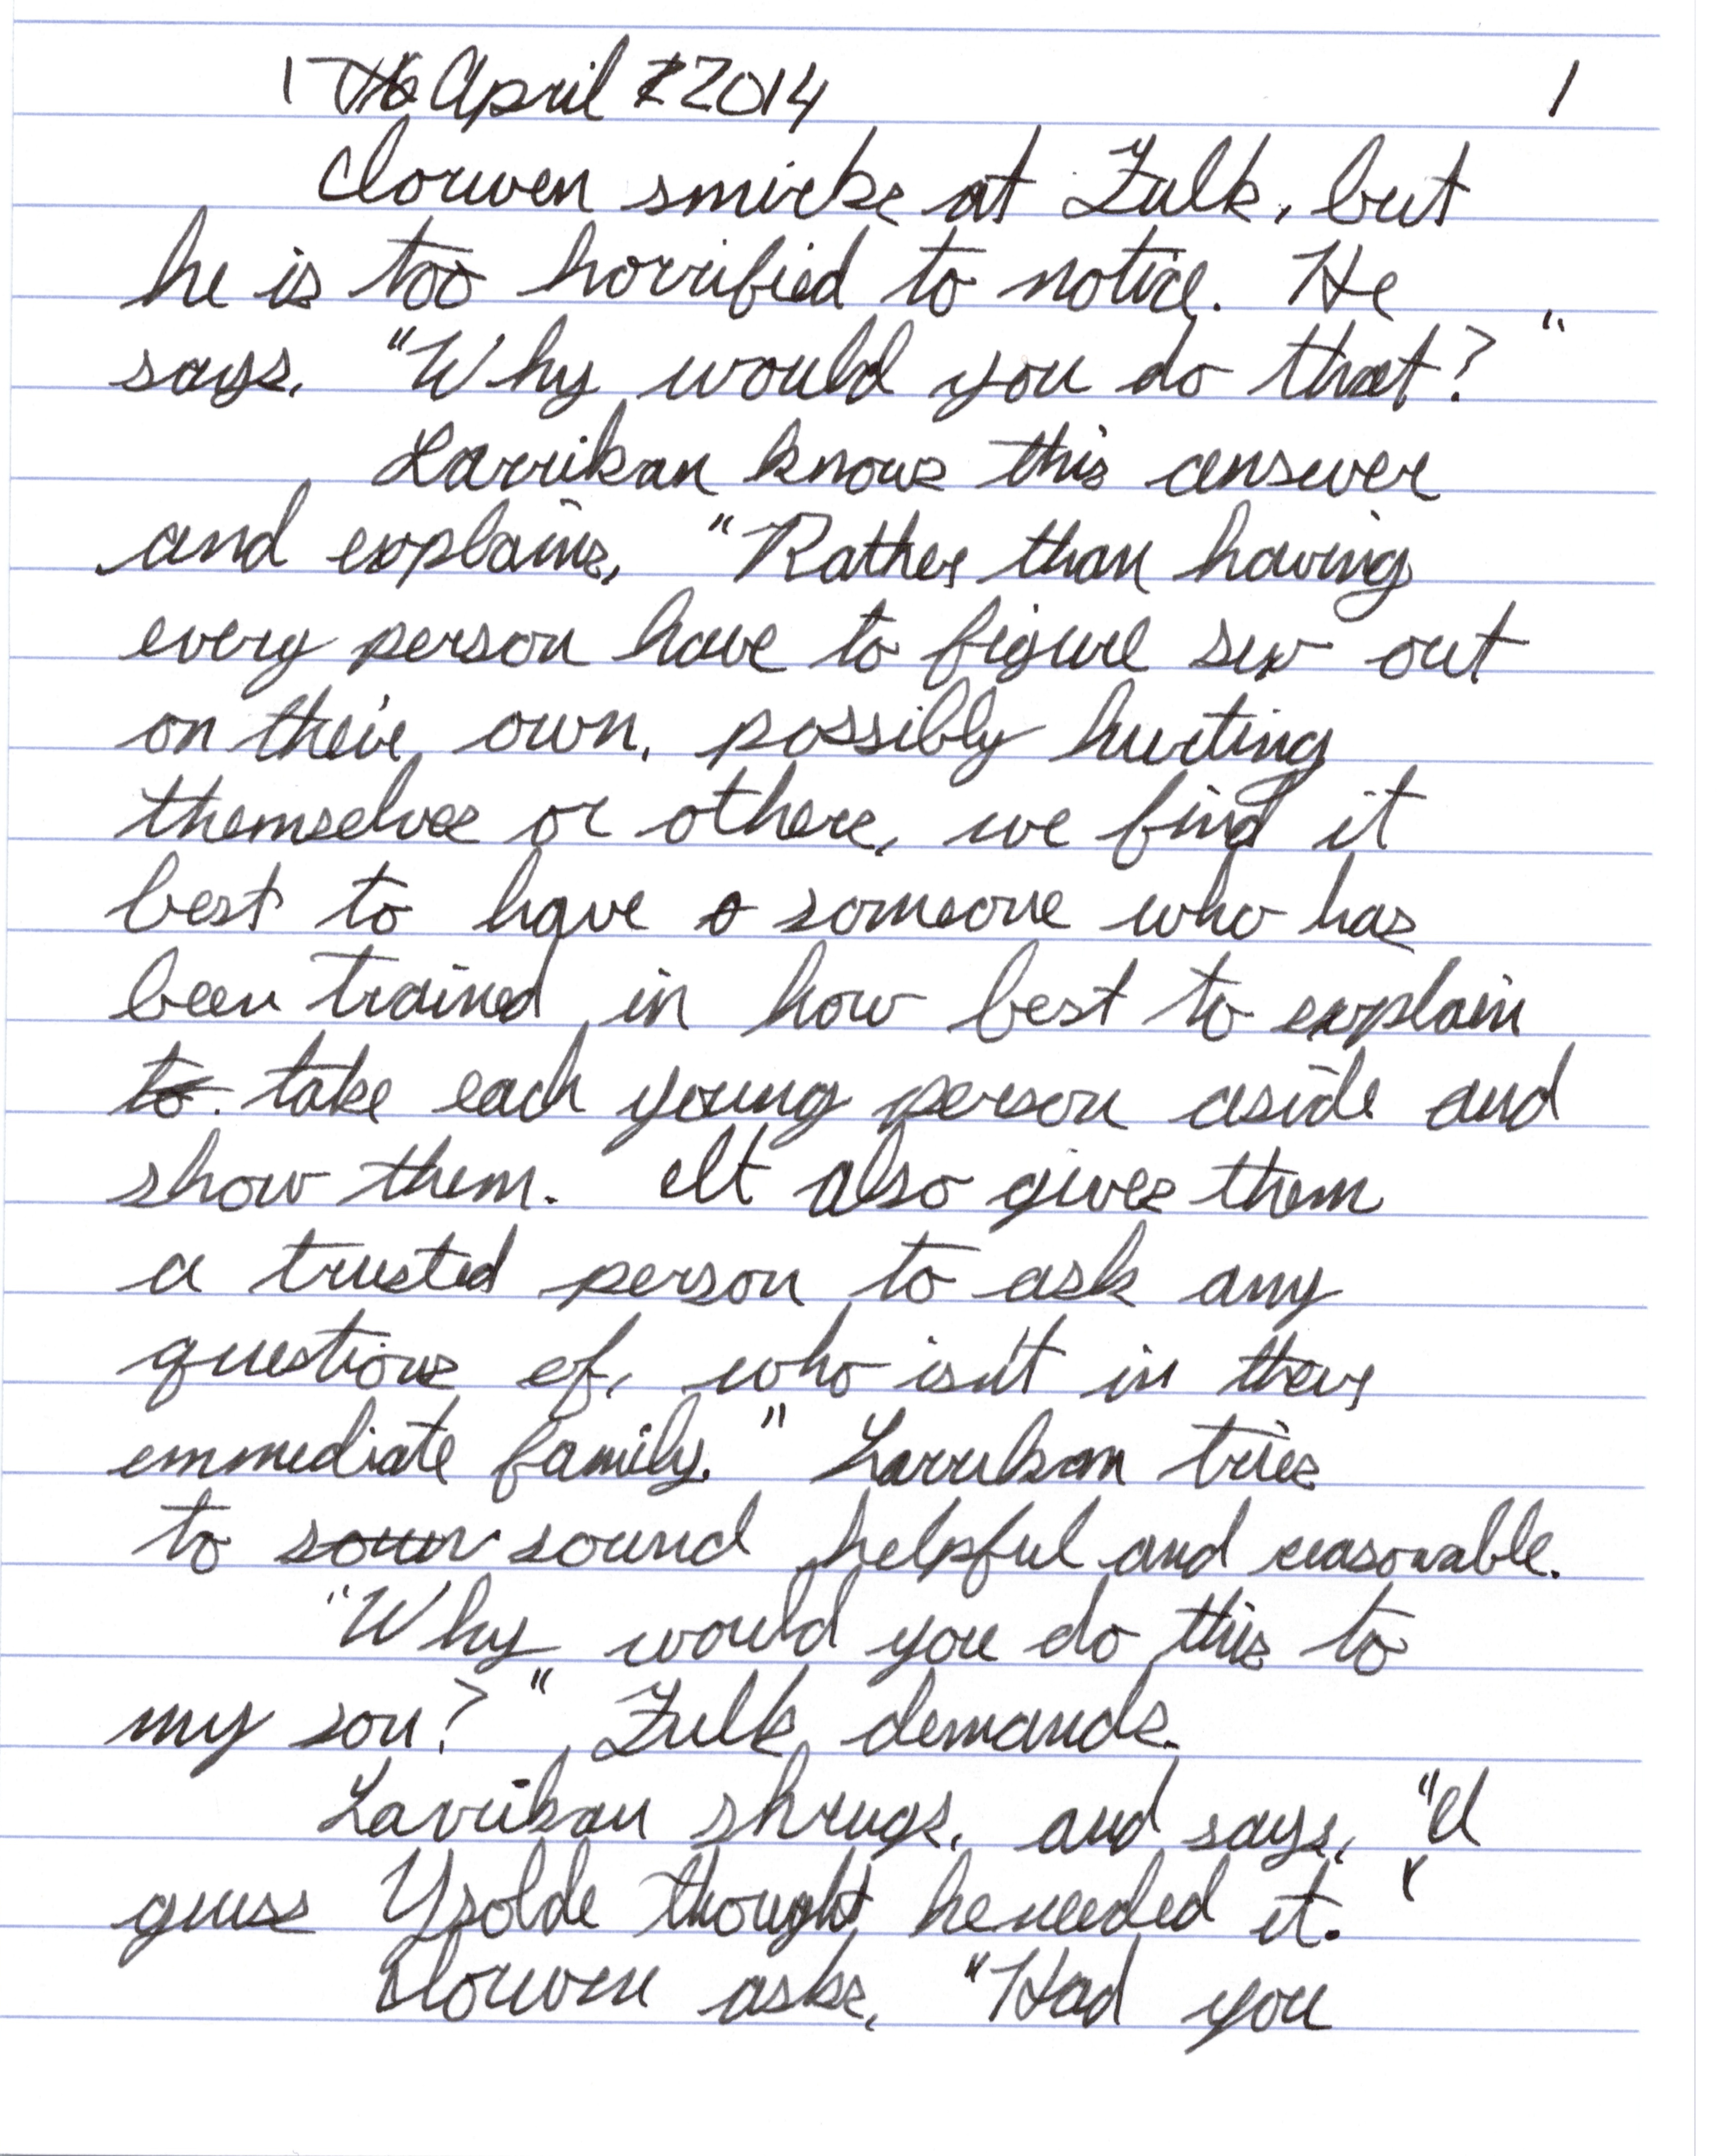 17 April 2014 1
Iorwen smirks at Fulk, but
he is too horrified to notice. He
says, "Why would you do that?"
Larrikan knows this answer
and explains, "Rather than having
every person have to figure sex out
on their own, possibly hurting
themselves or others, we find it
best to have someone who has
been trained in how best to explain
to take each young person aside and
show them. It also gives them
a trusted person to ask any
questions of, who isn't in their
emmediate family." Larrikan tries
to soun sound helpful and reasonable.
"Why would you do this to
my son?" Fulk demands.
Larrikan shrugs, and says, "I
guess Ysolde thought he needed it."
Iorwen asks, "Had you